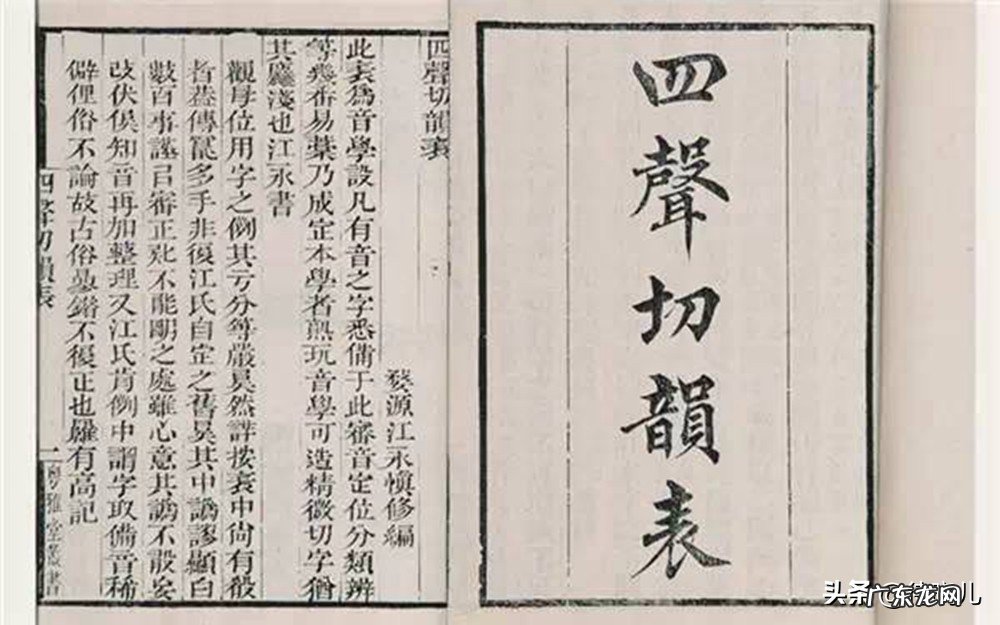 四聲切韻表
四聲切韻表
婺源江永慎修編
此表爲音學設凡有音之字悉備于此審音定位分類辨
等幾番易藁乃成定本學者熟玩音學可造精微切字猶
其麤淺也江永書
觀母位用字之例其亏分等嚴昊然詳按表中尚有殽
者葢傳寫多手非復江氏自定之舊昊其中譌謬顯白
數百事謹㠯審正不能剛之處雖心意其譌不敢妄
改伏俟知音再加整理又江氏肯例中謂字取備音稀
僻俚俗不論故古俗錯不復正也羅有高記
四聲切韻表
一
粤雅堂叢書
头条
东龙网儿